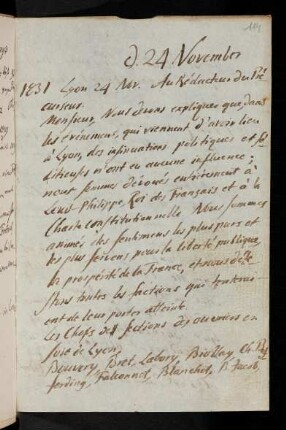 d. 24 November
1831 Lyon 24 Nov. Au Rédacteur du Pré
curseur.
Monsieur, Nous devons expliquer que dans
les événemens, qui viennent d'avoir lieu
à Lyon, des insinuations politiques et sé
ditieuses n'ont eu aucune influence;
nous sommes dévoués entièrement à
Louis-Philippe Roi des Français et à la
Charte constitutionnelle. Nous sommes
animés des sentimens les plus purs et
les plus fervens pour la liberté publique,
la prospérité de la France, et nous dete
stons toutes les factions qui tenteroi
ent de leur porter atteint.
Les Chefs de sections des ouvriers en
soie de Lyon,
Bouvery, Bret, Labory, Biollay, Ch.
Falconnet, Blanchet, B. Jacob,